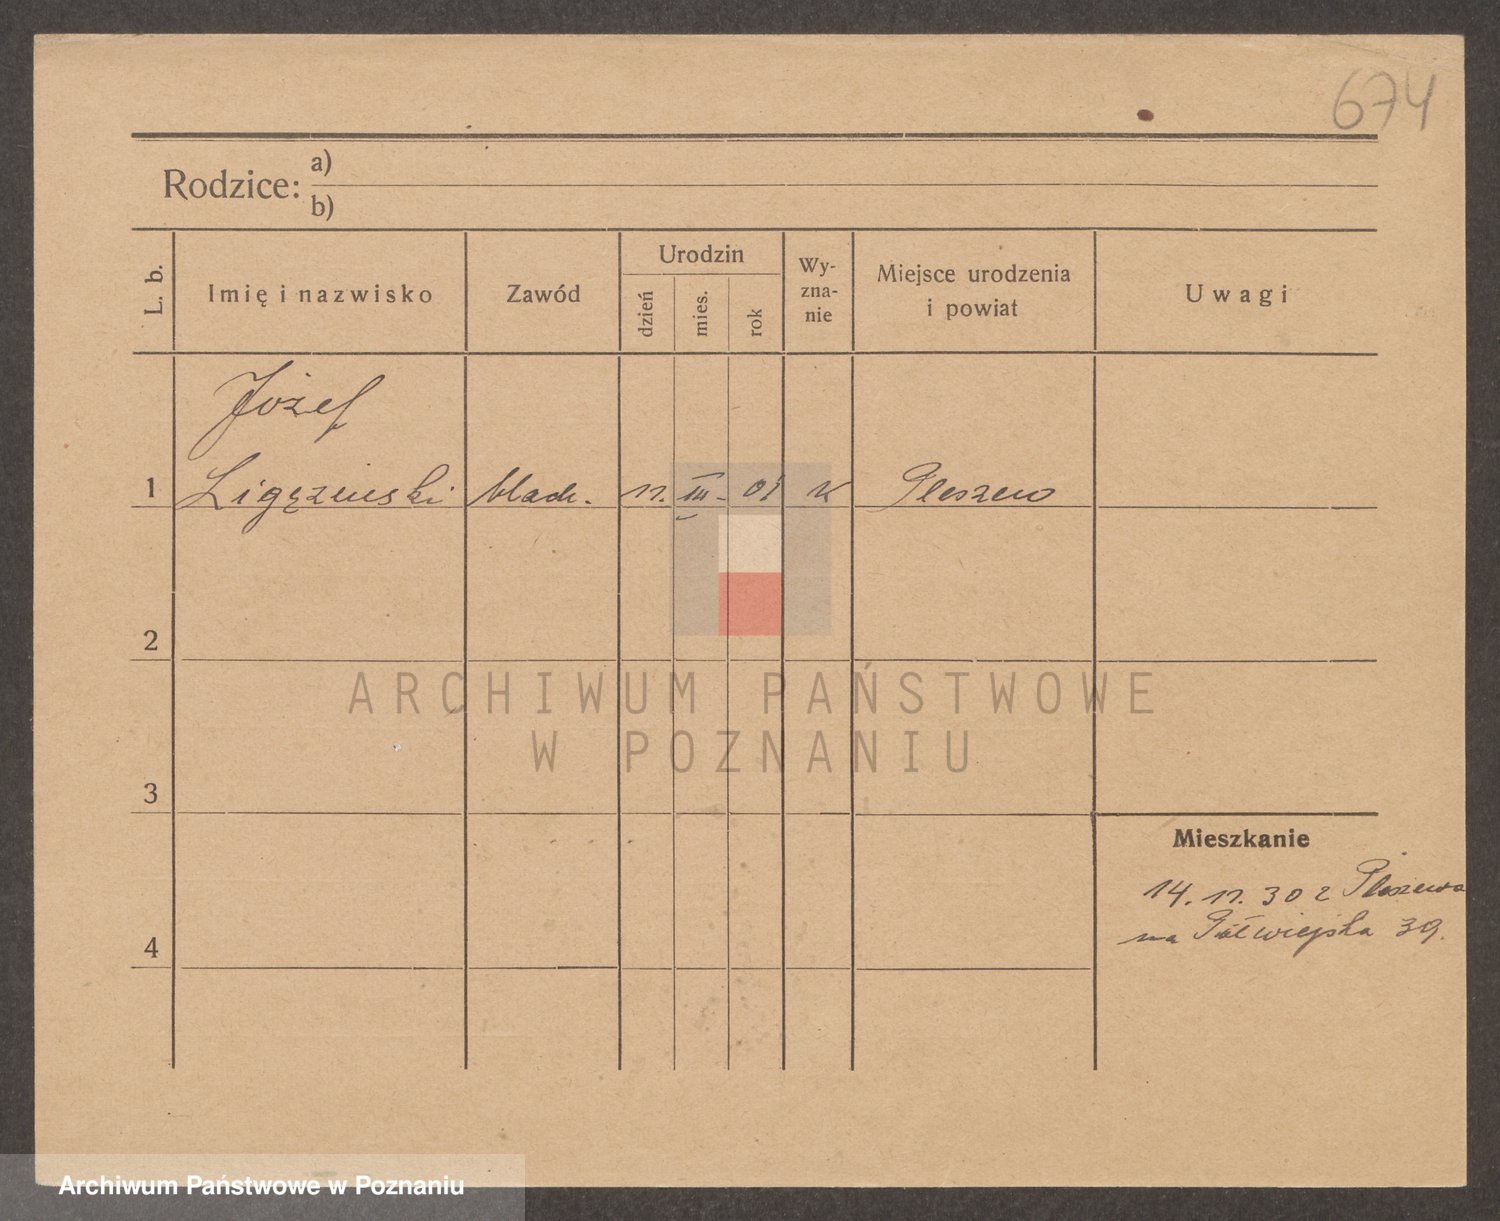 674
Rodzice: a)
b)
L. b. Imię i nazwisko Zawód Urodzin dzień mies. rok Wy-zna-nie Miejsce urodzenia i powiat Uwagi
Józef
1 Ligęzinski blach. 17. III. 01 K Pleszew
2
3
4
Mieszkanie
14. 11. 30 z Pleszewa
na Półwiejska 39.
ARCHIWUM PAŃSTWOWE
W POZNANIU
Archiwum Państwowe w Poznaniu